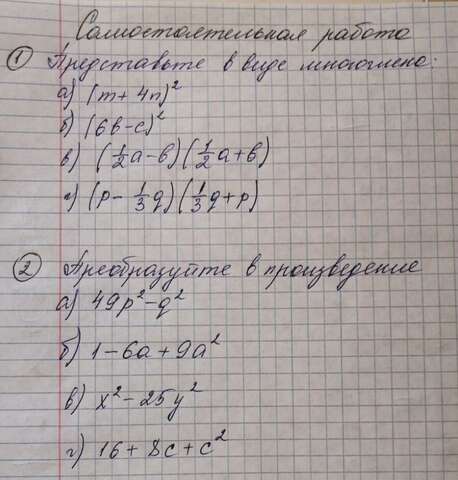 Самостоятельная работа
① Представьте в виде многочлена:
а) (m + 4n)²
б) (6b - c)²
в) (1/2 a - b) (1/2 a + b)
г) (p - 1/3 q) (1/3 q + p)
② Преобразуйте в произведение
а) 49p² - q²
б) 1 - 6a + 9a²
в) x² - 25y²
г) 16 + 8c + c²